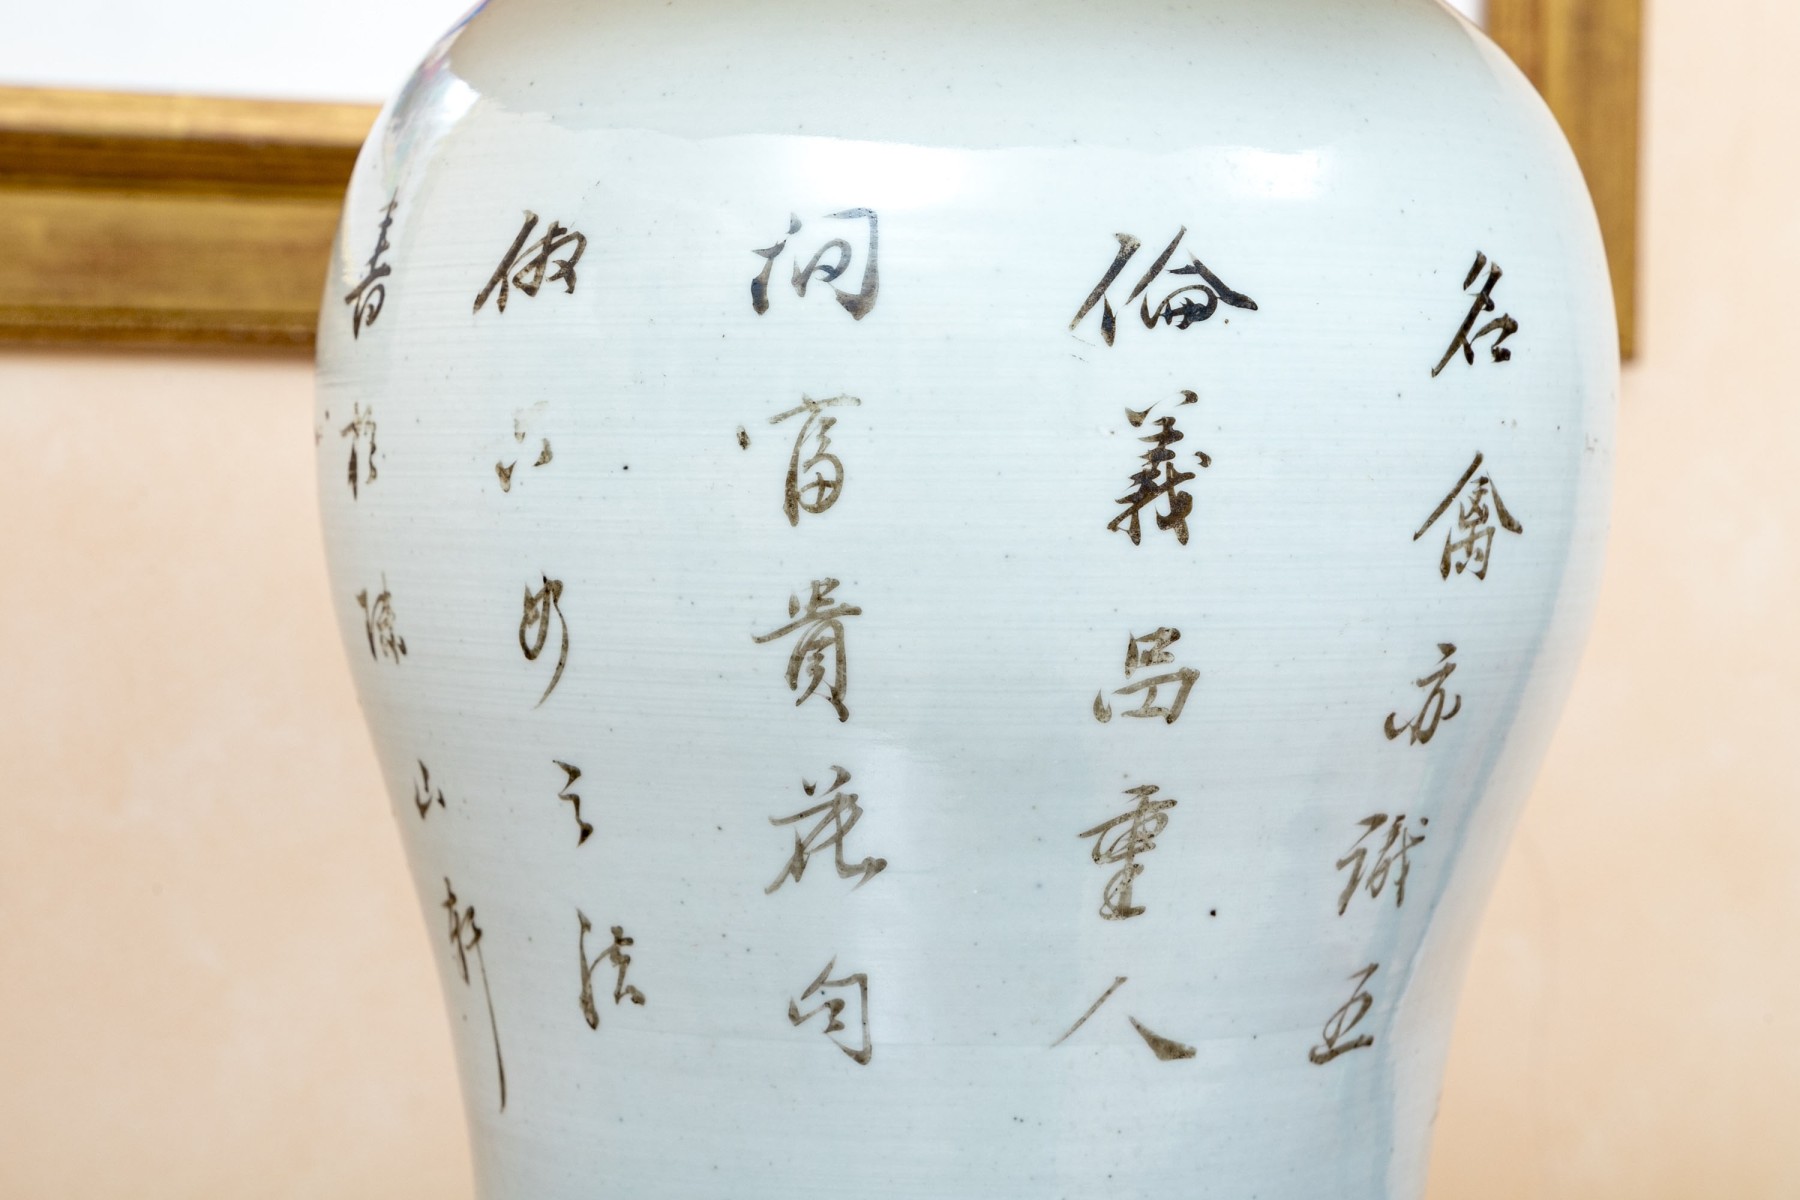 名禽亦識五
倫義品重人
間富貴花句
倣六如之法
書於珠山軒